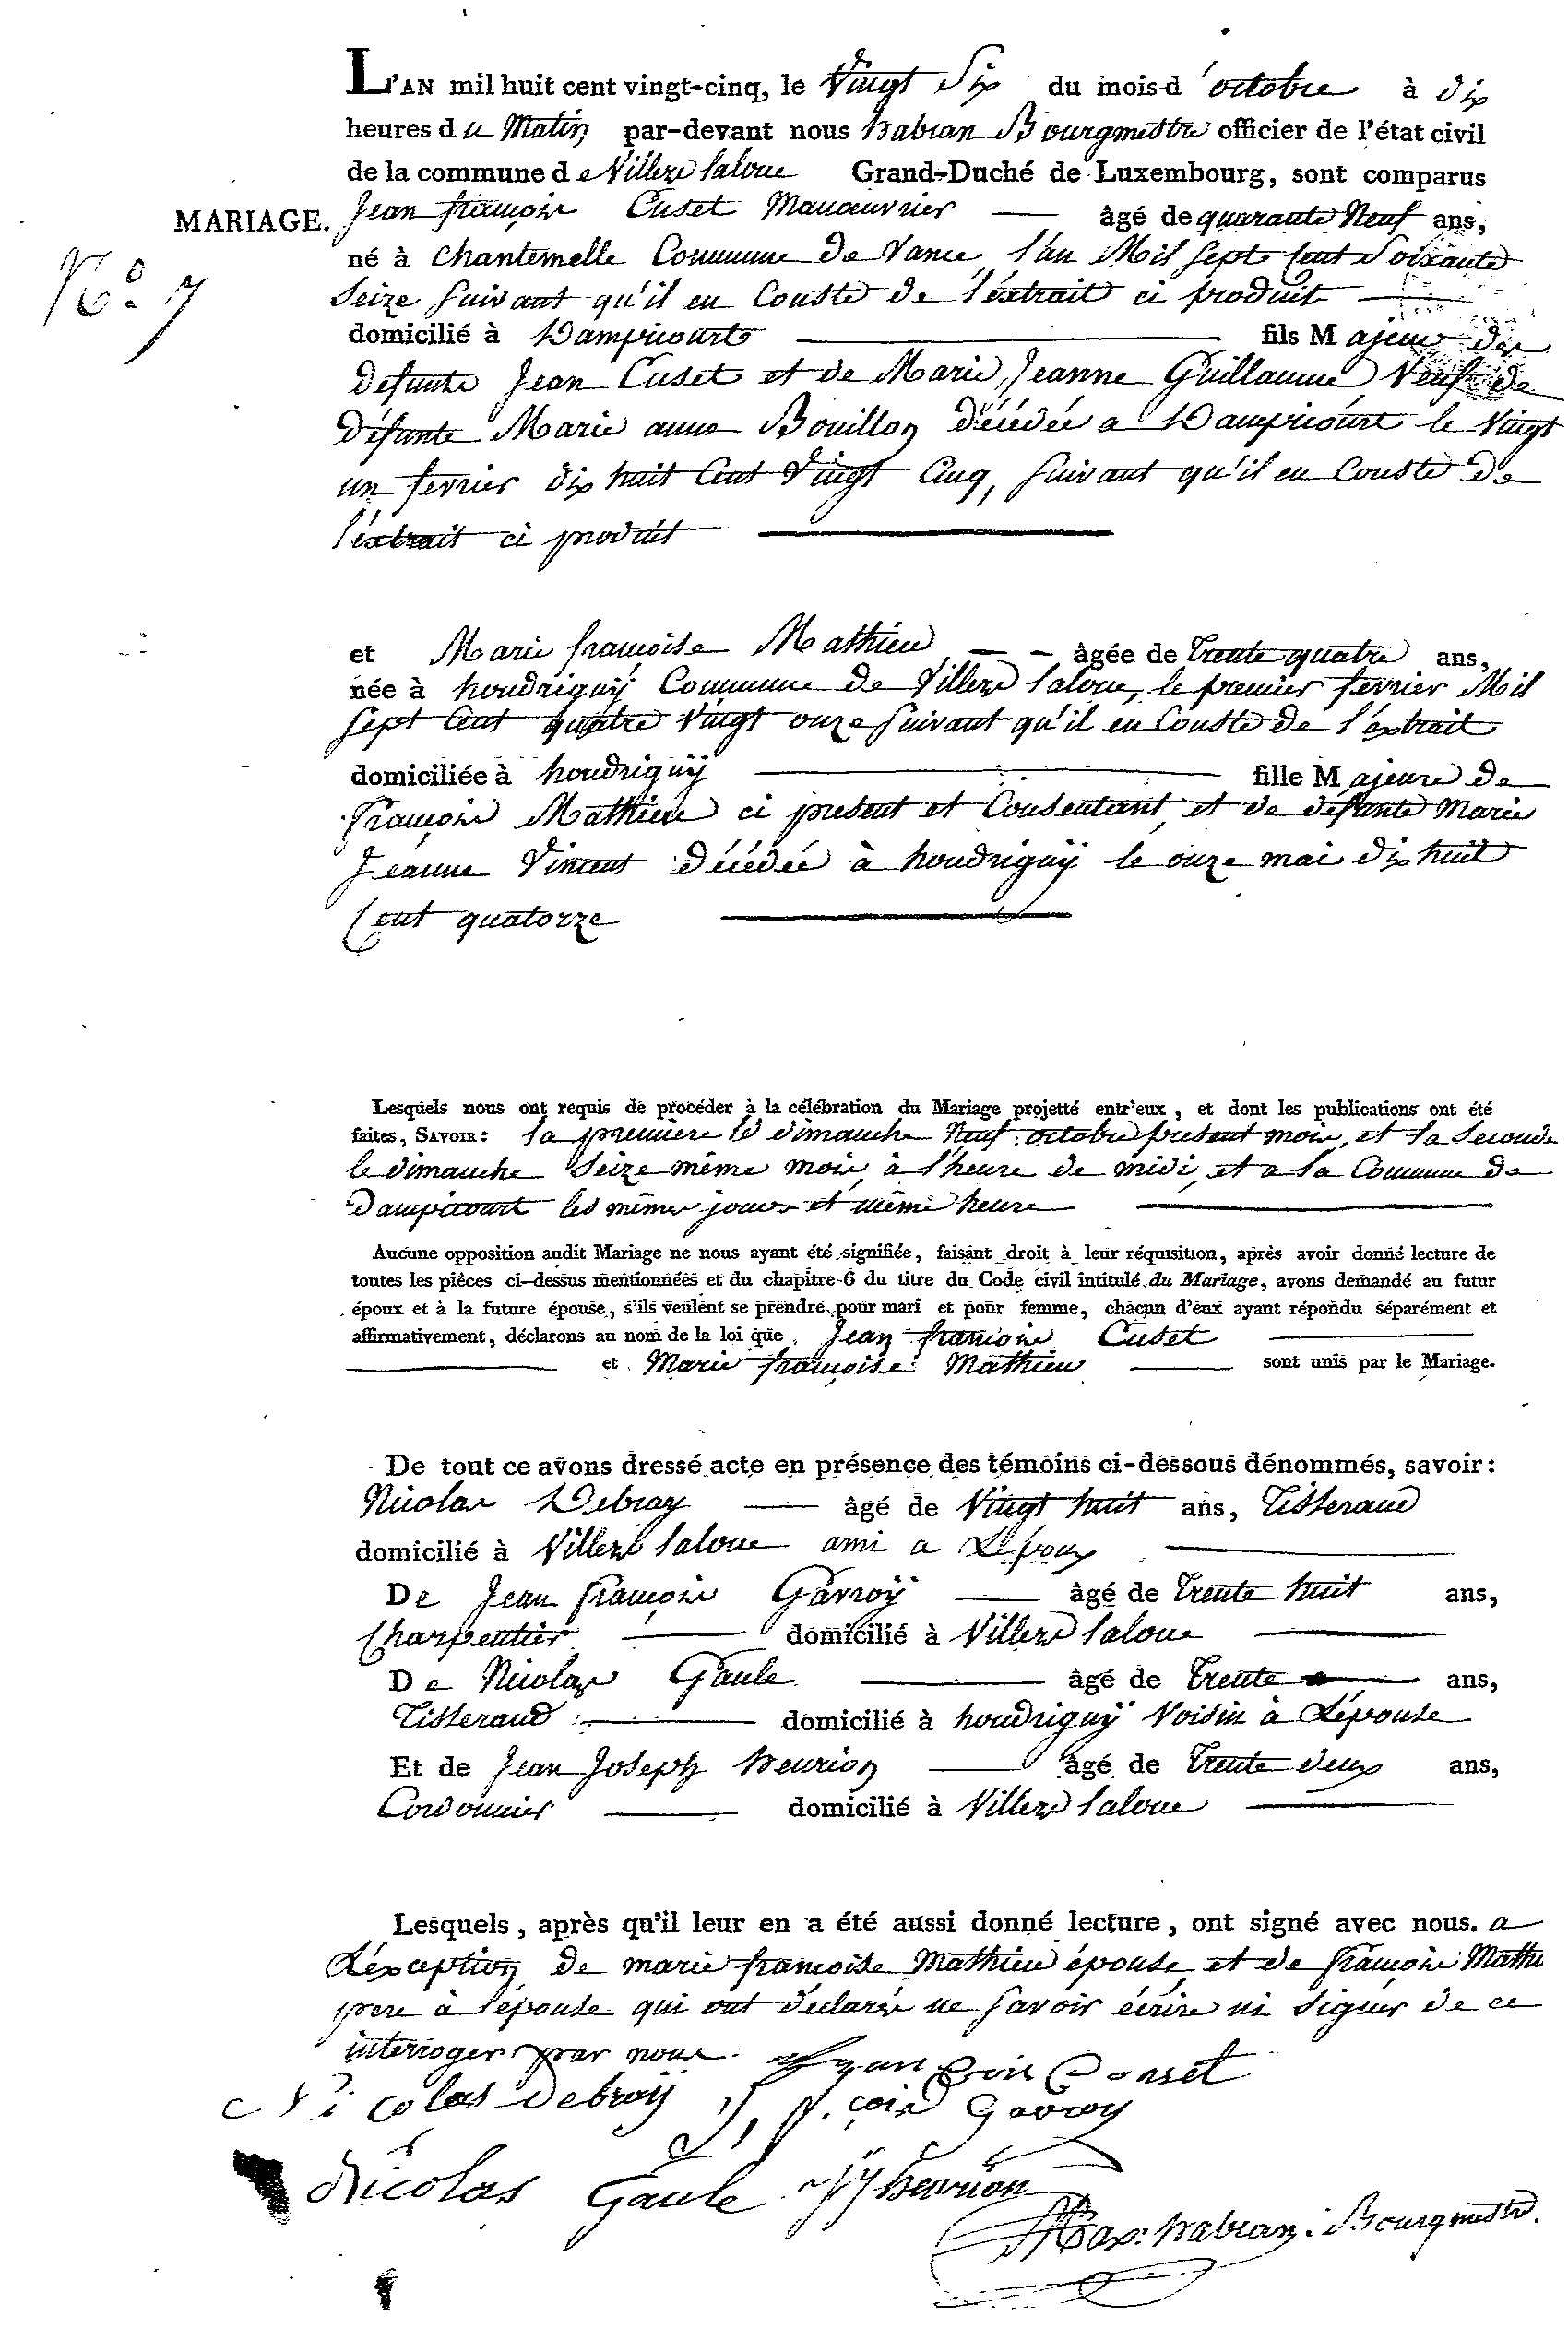 L'AN mil huit cent vingt-cinq, le Vingt Six du mois d'octobre à dix
heures du Matin par-devant nous habran Bourgmestre officier de l'état civil
de la commune de Villers laloue Grand-Duché de Luxembourg, sont comparus
MARIAGE. Jean françois Cuset Manœuvrier — âgé de quarante Neuf ans,
N.º 7
né à chantemelle Commune de Vance, l'an Mil Sept Cent Soixante
Seize Suivant qu'il en Conste de l'éxtrait ci produit
domicilié à Dampicourt fils Majeur des
defunts Jean Cuset et de Marie Jeanne Guillaume, Veuf de
défunte Marie anne Bouillon décédée a Dampicourt le Vingt
un fevrier dix huit Cent Vingt Cinq, Suivant qu'il en Conste de
l'éxtrait ci produit
et Marie françoise Mathieu — - âgée de trente quatre ans,
née à houdrignÿ Commune de Villers laloue, le premier fevrier Mil
Sept Cent quatre Vingt onze Suivant qu'il en Conste de l'éxtrait
domiciliée à houdrignÿ fille Majeure de
françois Mathieu ci present et Consentant, et de defunte Marie
Jeanne Vincent décédée à houdrignÿ le onze mai dix huit
Cent quatorze
Lesquels nous ont requis de procéder à la célébration du Mariage projetté entr'eux, et dont les publications ont été
faites, SAVOIR: la premiere le dimanche Neuf octobre présent mois, et la Seconde
le dimanche Seize même mois, à l'heure de midi, et a la Commune de
Dampicourt les mêmes jours et même heure
Aucune opposition audit Mariage ne nous ayant été signifiée, faisant droit à leur réquisition, après avoir donné lecture de
toutes les pièces ci-dessus mentionnées et du chapitre 6 du titre du Code civil intitulé du Mariage, avons demandé au futur
époux et à la future épouse, s'ils veulent se prendre pour mari et pour femme, chacun d'eux ayant répondu séparément et
affirmativement, déclarons au nom de la loi que Jean françois Cuset
et Marie françoise Mathieu sont unis par le Mariage.
De tout ce avons dressé acte en présence des témoins ci-dessous dénommés, savoir:
Nicolas Debray — âgé de Vingt huit ans, Tisserand
domicilié à Villers laloue ami a L'époux
De Jean françois Gavroÿ — âgé de trente huit ans,
Charpentier — domicilié à Villers laloue
De Nicolas Gaule — âgé de trente — ans,
Tisserand — domicilié à houdrignÿ Voisin à L'épouse
Et de Jean Joseph henrion — âgé de trente deux ans,
Cordonnier — domicilié à Villers laloue
Lesquels, après qu'il leur en a été aussi donné lecture, ont signé avec nous. a
L'éxception de marie françoise Mathieu épouse, et de françois Mathi
pere à l'épouse qui ont déclarés ne Savoir écrire ni Signer de ce
interroger par nous.
Nicolas Debroÿ J, f. çois Gavroy
Nicolas Gaule JJ henrion
Max: habran: Bourgmestre.